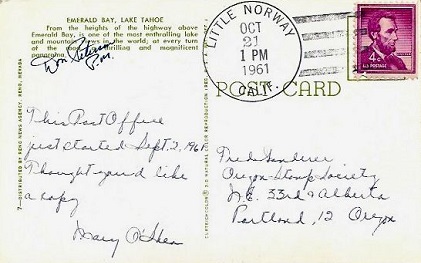 EMERALD BAY, LAKE TAHOE
From the heights of the highway above
Emerald Bay, is one of the most enthralling lake
and mountain views in the world; at every turn
of the thrilling and magnificent
panorama.
P.M.
7-DISTRIBUTED BY RENO NEWS AGENCY, RENO, NEVADA
LITTLE NORWAY
OCT
21
1 PM
1961
CALIF.
4¢
U.S. POSTAGE
POST CARD
This Post Office
just started Sept. 2, 1961
Thought you'd like
a copy
Mary O'Shea
Oregon Stamp Society
N.E. 33rd & Alberta
Portland, 12 Oregon